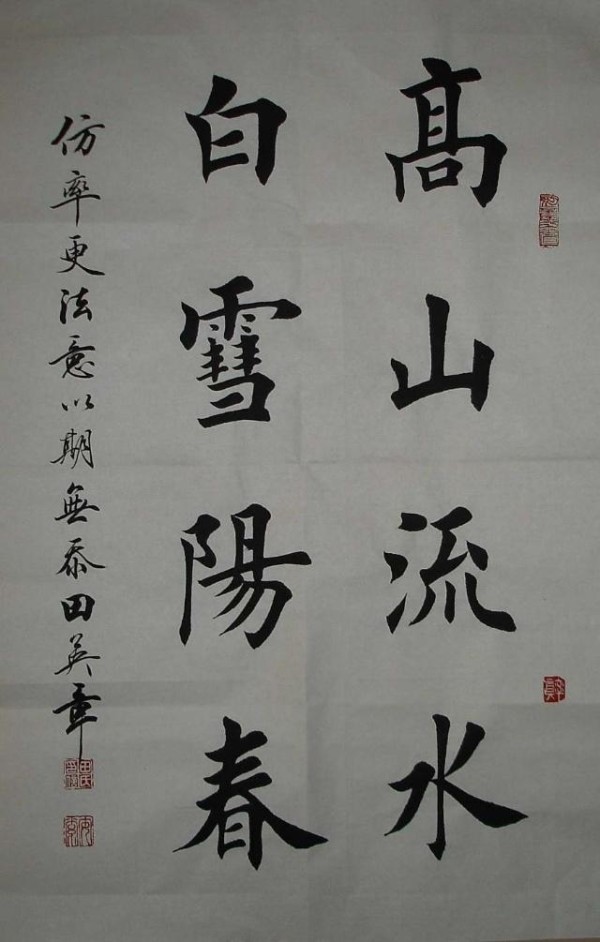 髙山流水
白雪陽春
仿率更法意以期無忝田英章